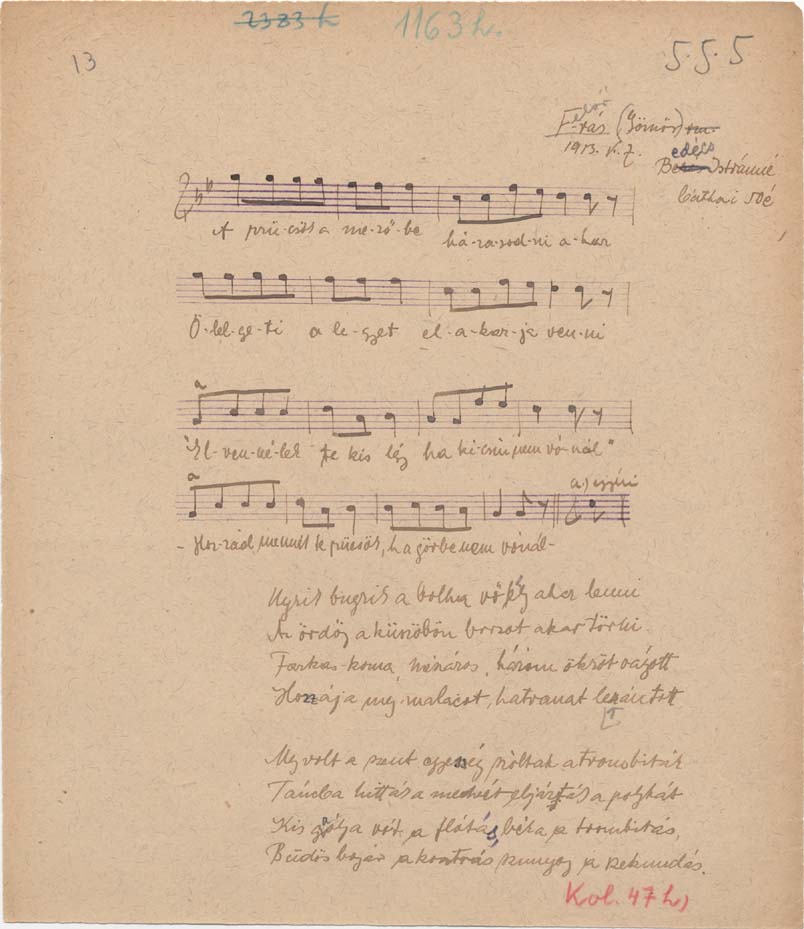 2383 h
1163 h.
13
5.5.5
F.rás (Gömör) m.
első
1913. V. 7.
Be Istvánné
edécs
50é
A prü-csök a me-ző-be há-za-sod-ni a-kar
Ö-lel-ge-ti a le-gyet el-a-kar-ja ven-ni
"El-ven-né-lek te kis légy ha ki-csiny nem vó-nál"
a
-Hoz-zád mennék te prücsök, ha görbe nem vónál-
a
a.) 
Ugrik bugrik a bolha vőfély akar lenni
Az ördög a küszöbön borsot akar törni
Farkas-koma, mináros, három ökröt vágott
Hozzája még malacot, hatvanat lerántott
Megvolt a szent egyesség szóltak a trombiták
Táncba hítták a medvét eljárták a polykát
Kis gólya vót a flótás, béka a trombitás,
Büdös bogár a kontrás, szunyog a sekundás.
Kol. 47 h)